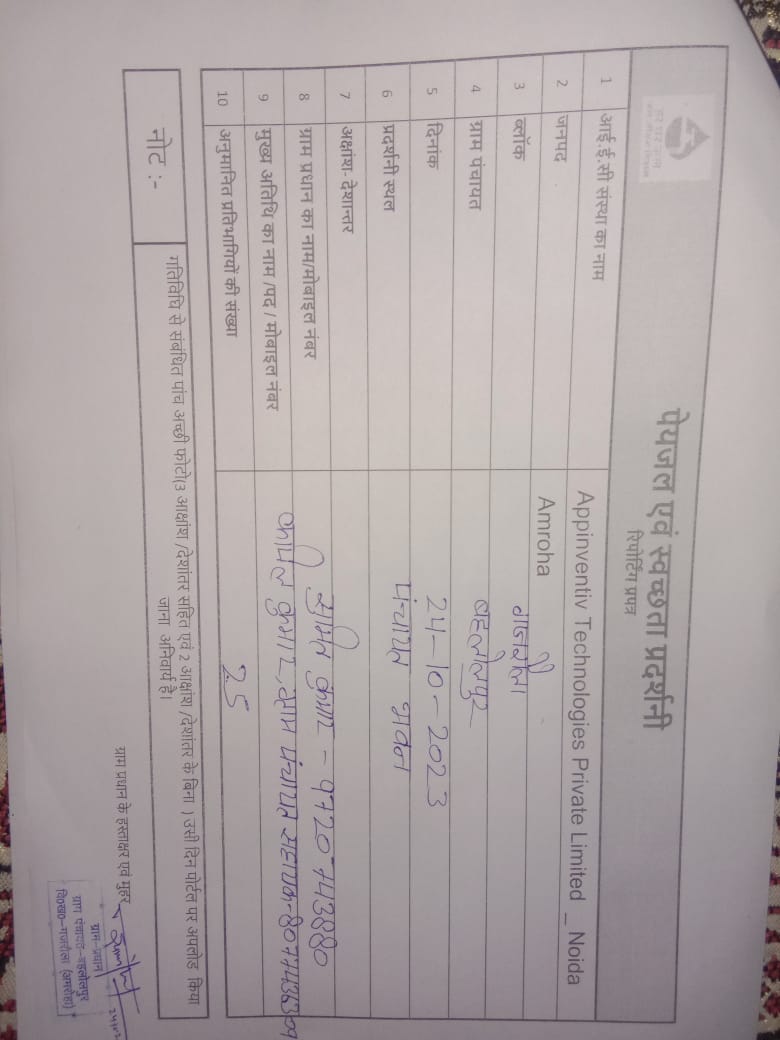 पेयजल एवं स्वच्छता प्रदर्शनी
रिपोर्टिंग प्रपत्र
1 आई.ई.सी संस्था का नाम Appinventiv Technologies Private Limited _ Noida
2 जनपद Amroha
3 ब्लॉक गजरौला
4 ग्राम पंचायत बहलोलपुर
5 दिनांक 24-10-2023
6 प्रदर्शनी स्थल पंचायत भवन
7 अक्षांश- देशान्तर
8 ग्राम प्रधान का नाम/मोबाइल नंबर कुमार - 9720743880
9 मुख्य अतिथि का नाम /पद / मोबाइल नंबर कुमार, ग्राम पंचायत सहायक-
10 अनुमानित प्रतिभागियों की संख्या 25
नोट :-
गतिविधि से संबंधित पांच अच्छी फोटो(3 आक्षांश /देशांतर सहित एवं 2 आक्षांश /देशांतर के बिना ) उसी दिन पोर्टल पर अपलोड किया
जाना अनिवार्य है।
ग्राम प्रधान के हस्ताक्षर एवं मुहर
ग्राम-प्रधान
ग्राम पंचायत-बहलोलपुर
वि०ख०-गजरौला (अमरोहा)